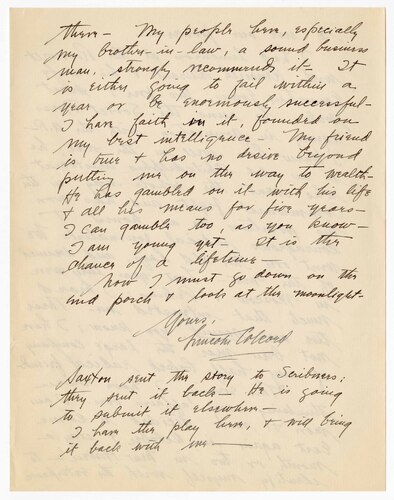 there — My people here, especially
my brother-in-law, a sound business
man, strongly recommends it — It
is either going to fail within a
year or be enormously successful —
I have faith in it, founded on
my best intelligence — My friend
is true & has no desire beyond
putting me on the way to wealth —
He has gambled on it with his life
& all his means for five years —
I can gamble too, as you know —
I am young yet — It is the
chance of a lifetime —
Now I must go down on the
end porch & look at the moonlight —
Yours,
Lincoln Colcord
Saxton sent the story to Scribners;
they sent it back — He is going
to submit it elsewhere —
I have the play here, & will bring
it back with me —